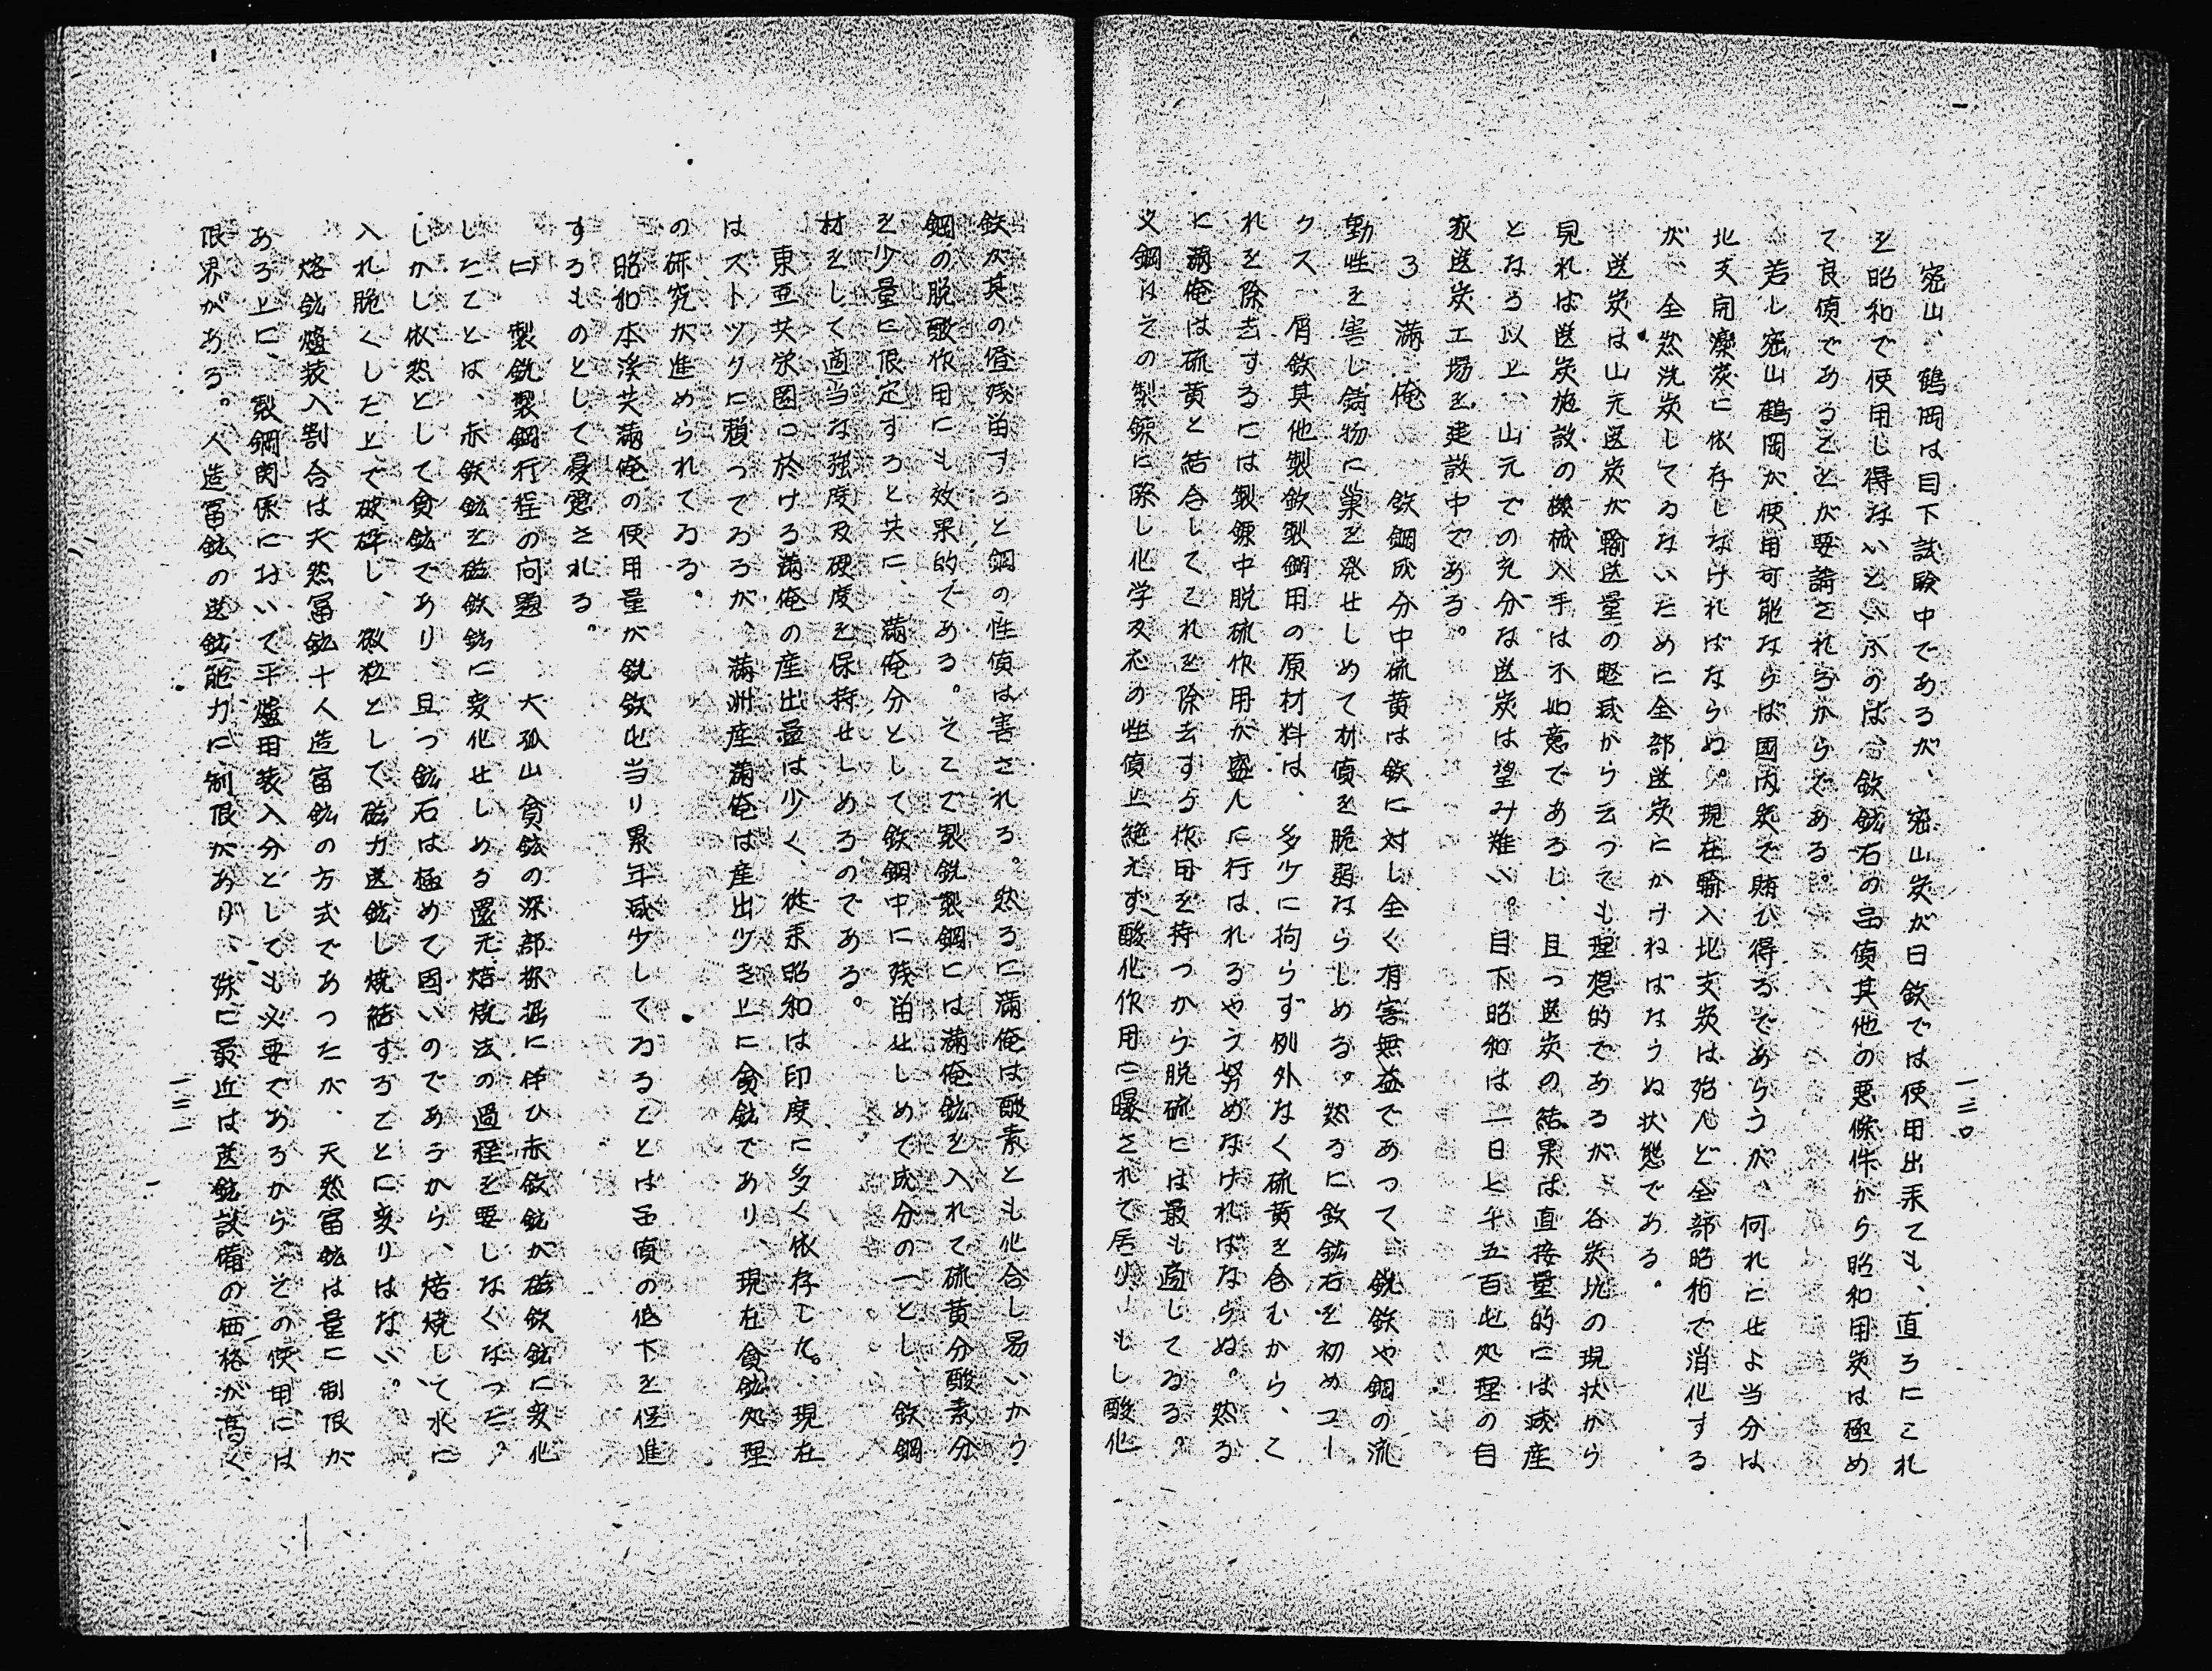 一三〇
密山、鶴岡は目下試験中であるが、密山炭が日鉄では使用出来ても、直ろにこれ
を昭和で使用し得ないといふのは㈠鉄鉱石の品位其他の悪條件から昭和用炭は極め
て良偵であることが要請されるからである。
若し密山鶴岡が使用可能ならば國内炭で賄ひ得るであらうが、何れにせよ当分は
北支開灤炭に依存しなければならぬ。現在輸入北支炭は殆んど全部昭和で消化する
が、全然洗炭してゐないために全部送炭にかけねばならぬ状態である。
送炭は山元選炭が輸送量の軽減から云つても理想的であるが、各炭坑の現状から
見れば選炭施設の機械入手は不如意であるし、且つ選炭の結果は直接量的には減産
となる以上、山元での充分な送炭は望み難い。目下昭和は一日七千五百屯処理の自
家送炭工場を建設中である。
3 満俺 鉄鋼成分中硫黄は鉄に対し全く有害無益であつて、銑鉄や鋼の流
動性を害し鋳物に巣を発せしめて材偵を脆弱ならしめる。然るに鉄鉱石を初めコー
クス、屑鉄其他製鉄製鋼用の原材料は、多少に拘らず例外なく硫黄を含むから、こ
れを除去するには製錬中脱硫作用が盛んに行はれるやう努めなければならぬ。然る
に満俺は硫黄と結合してこれを除去する作用を持つから脱硫には最も適してゐる。
又鋼はその製錬に際し化学反応の性偵上絶えず酸化作用に曝されて居り、もし酸化
鉄が其の侭残留すると鋼の性偵は害される。然るに満俺は酸素とも化合し易いから
鋼の脱酸作用にも效果的である。そこで製銑製鋼には満俺鉱を入れて硫黄分酸素分
を少量に限定すると共に、満俺分として鉄鋼中に残留せしめて成分の一とし、鉄鋼
材をして適当な強度及硬度を保持せしめるのである。
東亜共栄圏に於ける満俺の産出量は少く、従来昭和は印度に多く依存した。現在
はストツクに頼つてゐるが、満洲産満俺は産出少き上に貧鉱であり、現在貧鉱処理
の研究が進められてゐる。
昭和本溪共満俺の使用量が銑鉄屯当り累年減少してゐることは品偵の低下を促進
するものとして憂慮される。
㈡ 製銑製鋼行程の問題 大孤山貧鉱の深部採掘に伴ひ赤鉄鉱が磁鉄鉱に変化
したことは、赤鉄鉱を磁鉄鉱に変化せしめる還元焙焼法の過程を要しなくなつた。
しかし依然として貧鉱であり、且つ鉱石は極めて固いのであるから、焙焼して水に
入れ脆くした上で破砕し、微粒として磁力送鉱し焼結することに変りはない。
熔鉱爐装入割合は天然冨鉱十人造富鉱の方式であつたが、天然富鉱は量に制限が
ある上に、製鋼関係において平爐用装入分としても必要であるから、その使用には
限界がある。人造冨鉱の送鉱能力に制限があり、殊に最近は送鉱設備の価格が高く、
一三一